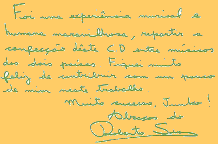 Foi uma experiência musical e
humana maravilhosa, repartir a
confecção dêste CD entre músicos
dos dois países. Fiquei muito
feliz de contribuir com um pouco
de mim neste trabalho.
Muito sucesso, Junho!
Abraços do